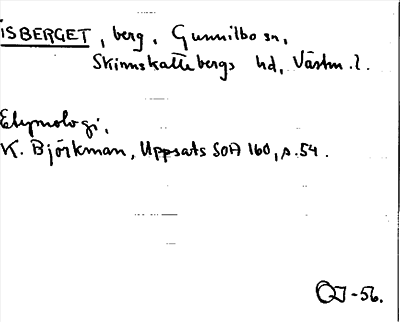 ISBERGET, berg, Gunnilbo sn,
Skinnskattebergs hd, Västm. l.
Etymologi,
K. Björkman, Uppsats SOA 160, s. 54.
OJ-56.